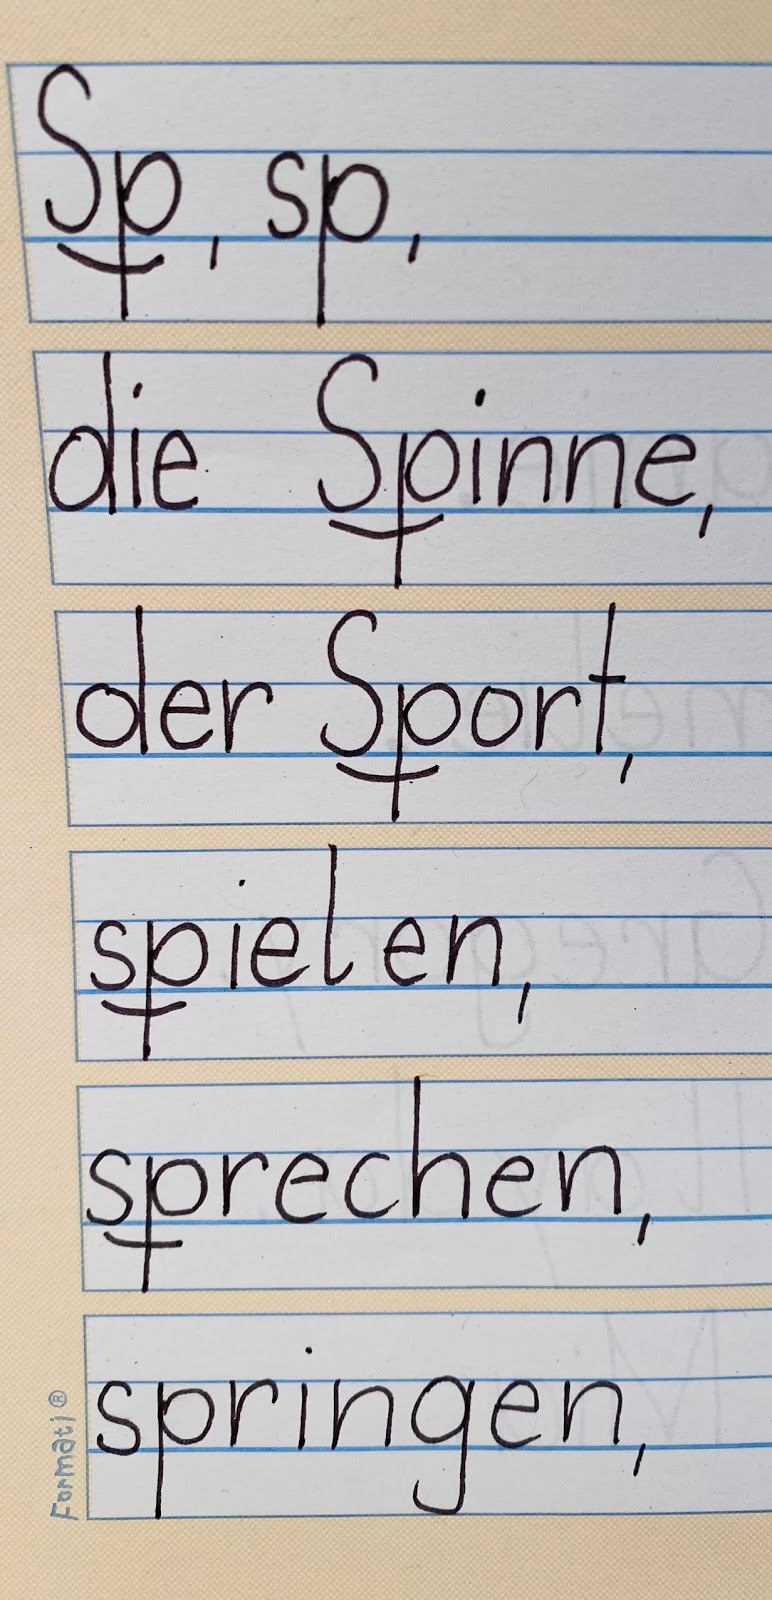 Sp, sp,
die Spinne,
der Sport,
spielen,
sprechen,
springen,
Formati®